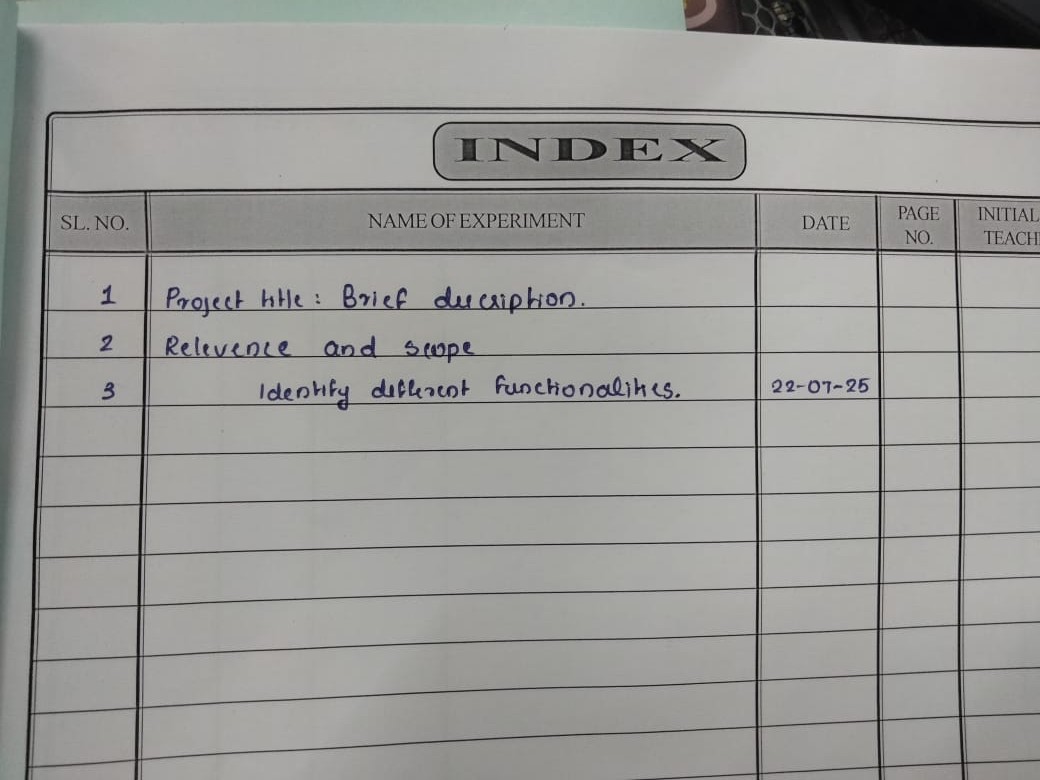 INDEX
SL. NO. NAME OF EXPERIMENT DATE PAGE NO. INITIAL TEACH
1 Project title : Brief ducription.
2 Relevence and scope
3 Identify different functionalities. 22-07-25